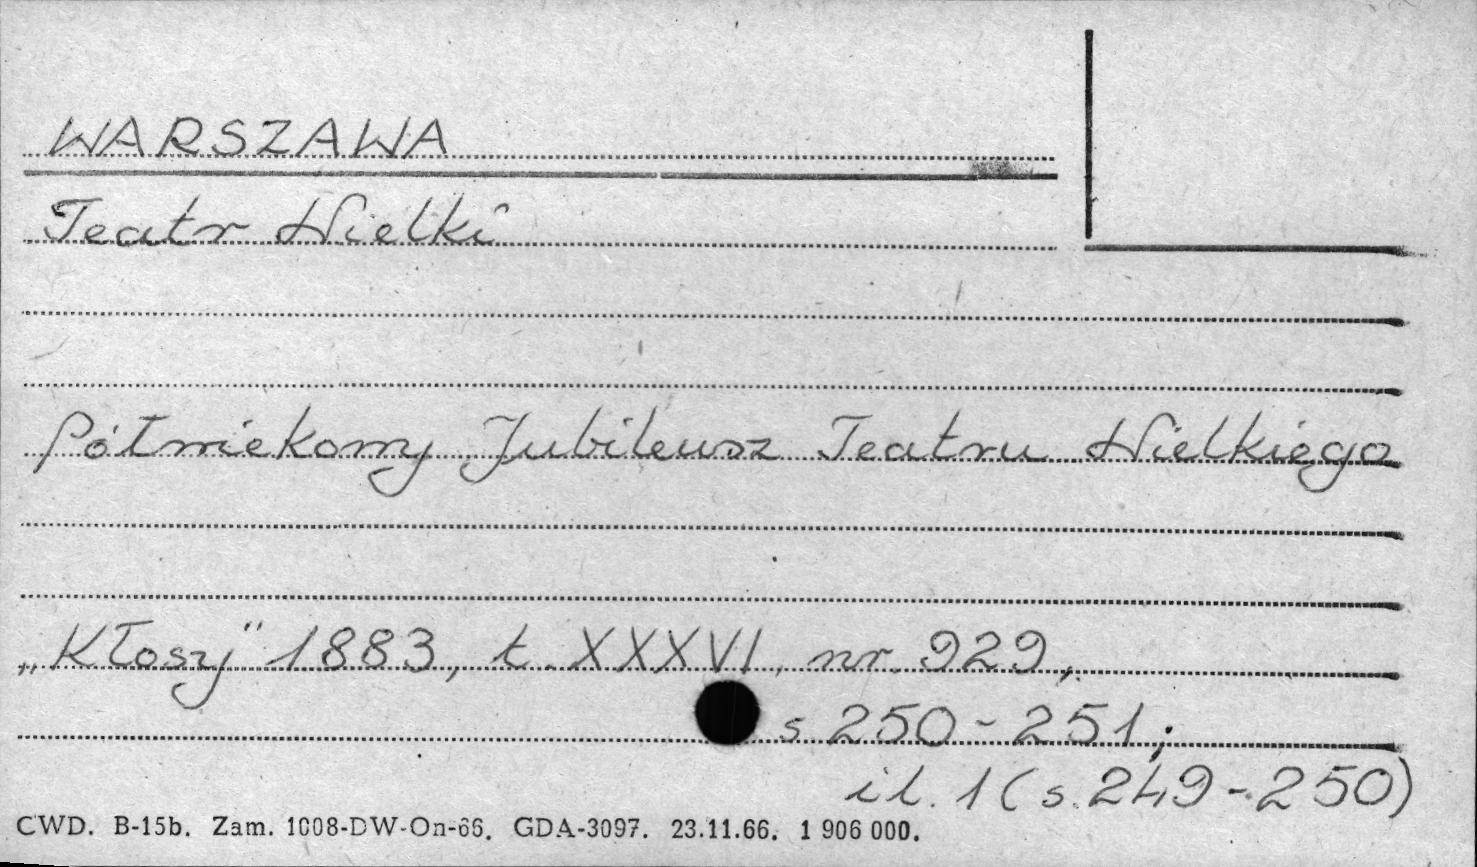 WARSZAWA
Teatr Wielki
Półwiekowy Jubileusz Teatru Wielkiego
„Kłosy" 1883, t. XXXVI, nr. 929,
s 250-251;
il. 1 (s. 249-250)
CWD. B-15b. Zam. 1008-DW-On-66. GDA-3097. 23.11.66. 1 906 000.